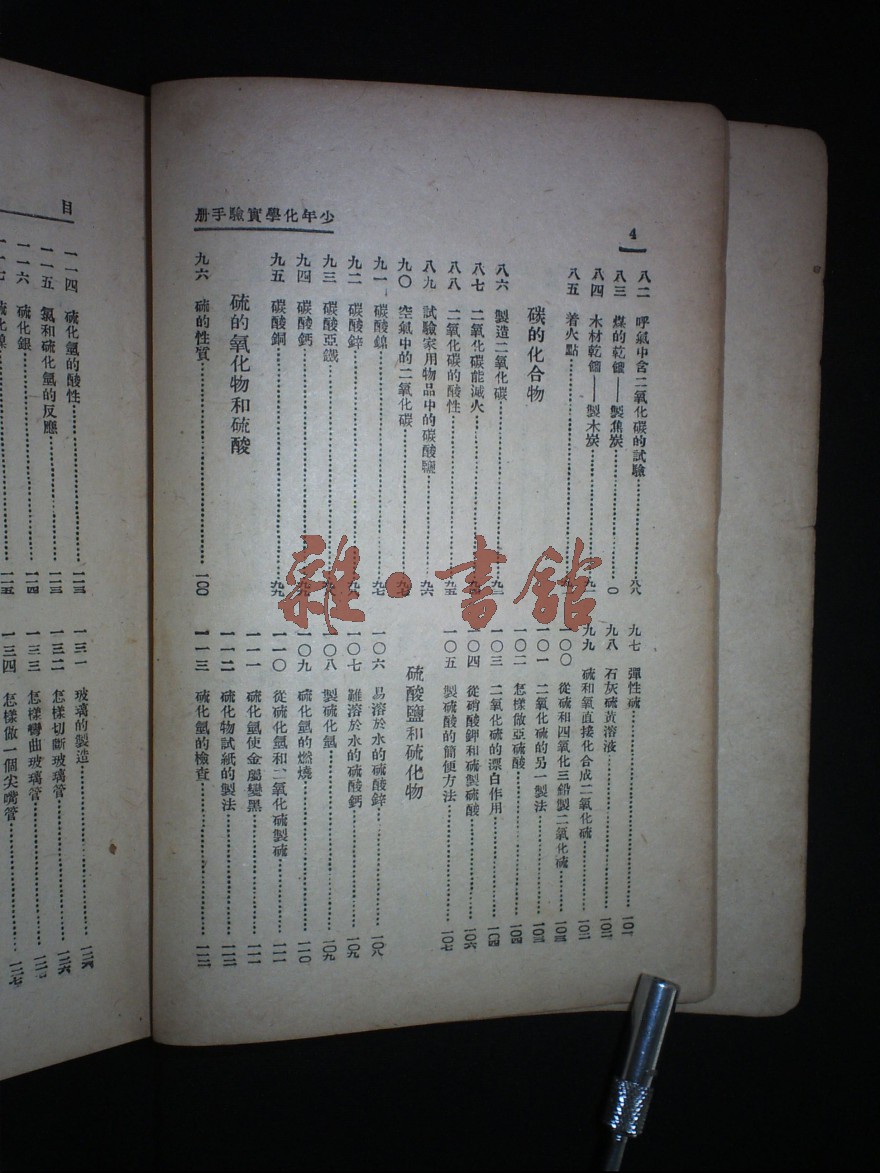 少年化學實驗手册
4
八二 呼氣中含二氧化碳的試驗 八八
八三 煤的乾餾——製焦炭
八四 木材乾餾——製木炭
八五 着火點
碳的化合物
八六 製造二氧化碳
八七 二氧化碳能滅火
八八 二氧化碳的酸性 九五
八九 試驗家用物品中的碳酸鹽 九六
九〇 空氣中的二氧化碳 九七
九一 碳酸鎳 九七
九二 碳酸鋅
九三 碳酸亞鐵
九四 碳酸鈣
九五 碳酸銅 九九
硫的氧化物和硫酸
九六 硫的性質 一〇〇
九七 彈性硫 一〇一
九八 石灰硫黃溶液
九九 硫和氧直接化合成二氧化硫
一〇〇 從硫和四氧化三鉛製二氧化硫 一〇三
一〇一 二氧化硫的另一製法 一〇三
一〇二 怎樣做亞硫酸 一〇四
一〇三 二氧化硫的漂白作用 一〇四
一〇四 從硝酸鉀和硫製硫酸 一〇六
一〇五 製硫酸的簡便方法 一〇七
硫酸鹽和硫化物
一〇六 易溶於水的硫酸鋅 一〇八
一〇七 難溶於水的硫酸鈣 一〇九
一〇八 製硫化氫 一〇九
一〇九 硫化氫的燃燒 一一〇
一一〇 從硫化氫和二氧化硫製硫 一一一
一一一 硫化氫使金屬變黑 一一一
一一二 硫化物試紙的製法 一一二
一一三 硫化氫的檢查 一一二
目
一一四 硫化氫的酸性 一一三
一一五 氯和硫化氫的反應 一一三
一一六 硫化銀 一一四
一一七 硫化鎳 一一五
一三一 玻璃的製造 一二六
一三二 怎樣切斷玻璃管 一二六
一三三 怎樣彎曲玻璃管 一二七
一三四 怎樣做一個尖嘴管 一二七
雜·書館